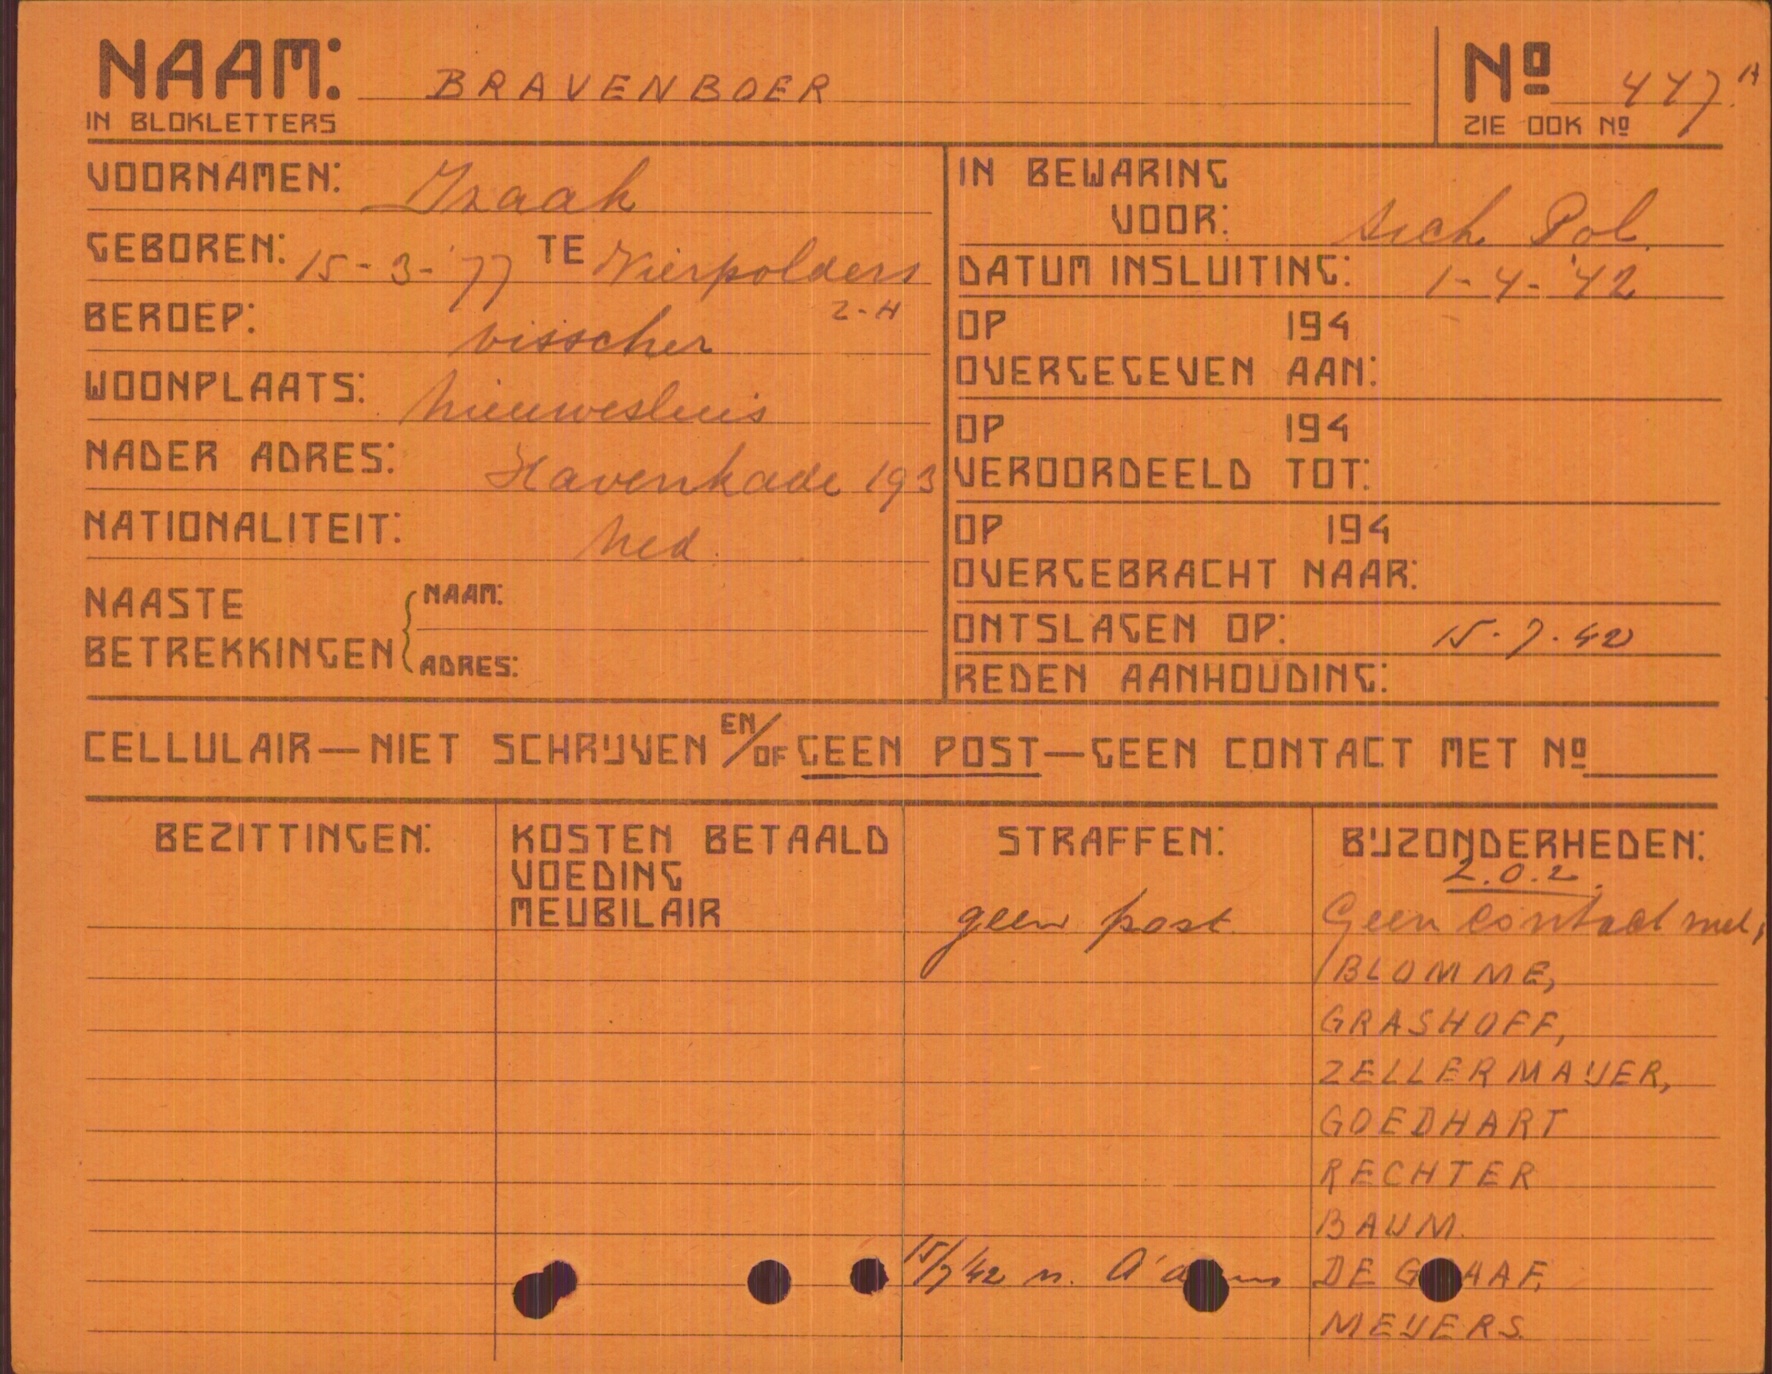 NAAM: BRAVENBOER
IN BLOKLETTERS
Nº 447 A
ZIE OOK Nº
VOORNAMEN: Izaak
GEBOREN: 15-3-'77 TE Nierpolders
Z-H
BEROEP: visscher
WOONPLAATS: Nieuwesluis
NADER ADRES: Havenkade 193
NATIONALITEIT: Ned.
NAASTE BETREKKINGEN
NAAM:
ADRES:
IN BEWARING
VOOR: Sich. Pol.
DATUM INSLUITING: 1-4-'42
OP 194
OVERGEGEVEN AAN:
OP 194
VEROORDEELD TOT:
OP 194
OVERGEBRACHT NAAR:
ONTSLAGEN OP: 15-7-42
REDEN AANHOUDING:
CELLULAIR—NIET SCHRIJVEN EN/OF GEEN POST—GEEN CONTACT MET Nº
BEZITTINGEN:
KOSTEN BETAALD
VOEDING
MEUBILAIR
STRAFFEN:
geen post
15/7 '42 n. A'dam
BIJZONDERHEDEN:
2.0.2.
Geen contact met;
BLOMME,
GRASHOFF,
ZELLERMAIJER,
GOEDHART
RECHTER
BAUM.
DE GRAAF,
MEIJERS.